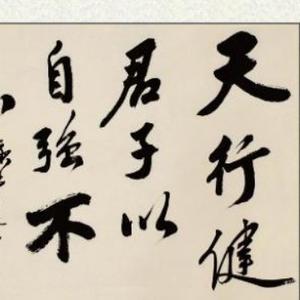 天行健
君子以
自強不